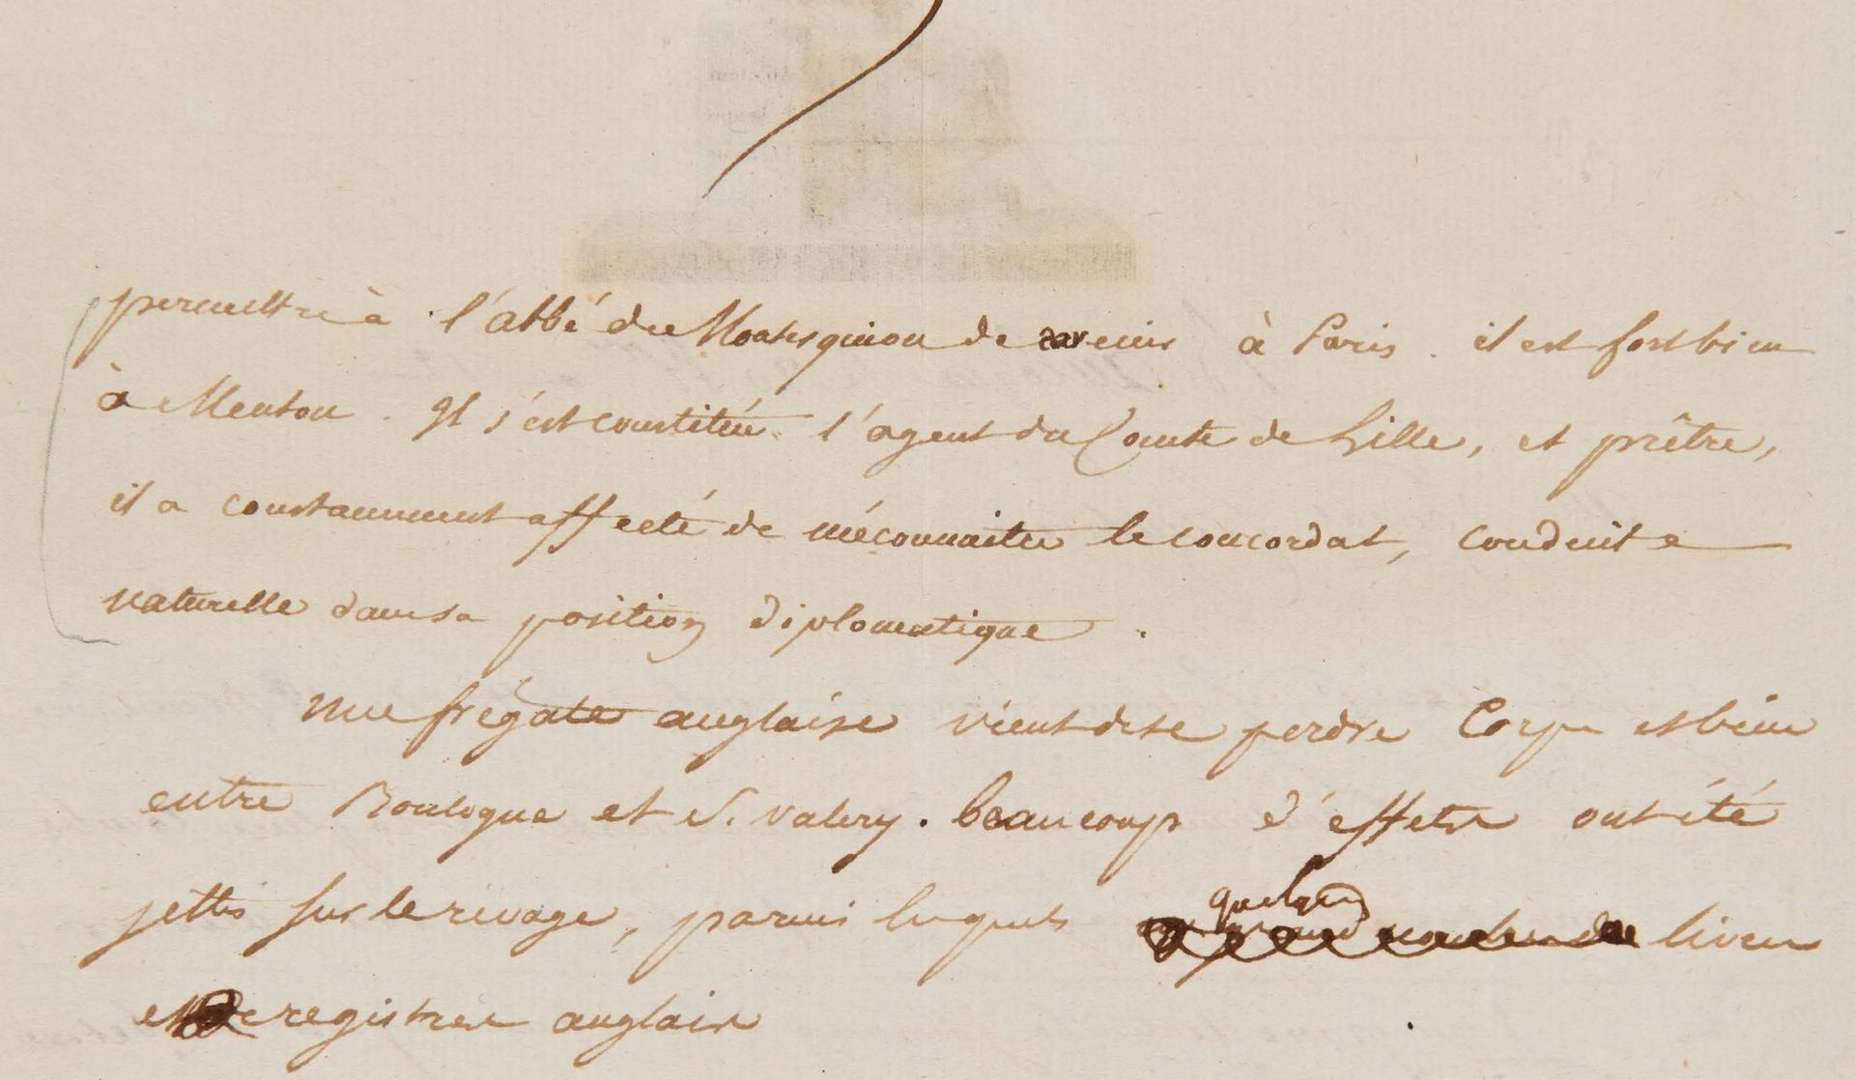 permettre à l'abbé de Montesquiou de revenir à Paris. il est fort bien
à Menton. Il s'est constitué l'agent du Comte de Lille, et prêtre,
il a constamment affecté de méconnaitre le concordat, conduite
naturelle dans sa position diplomatique.
Une frégate anglaise vient de se perdre Corps et bien
entre Boulogne et S. Valery. beaucoup d'éffets ont été
jettés sur le rivage, parmi lesquels quelques livres
et registres anglais